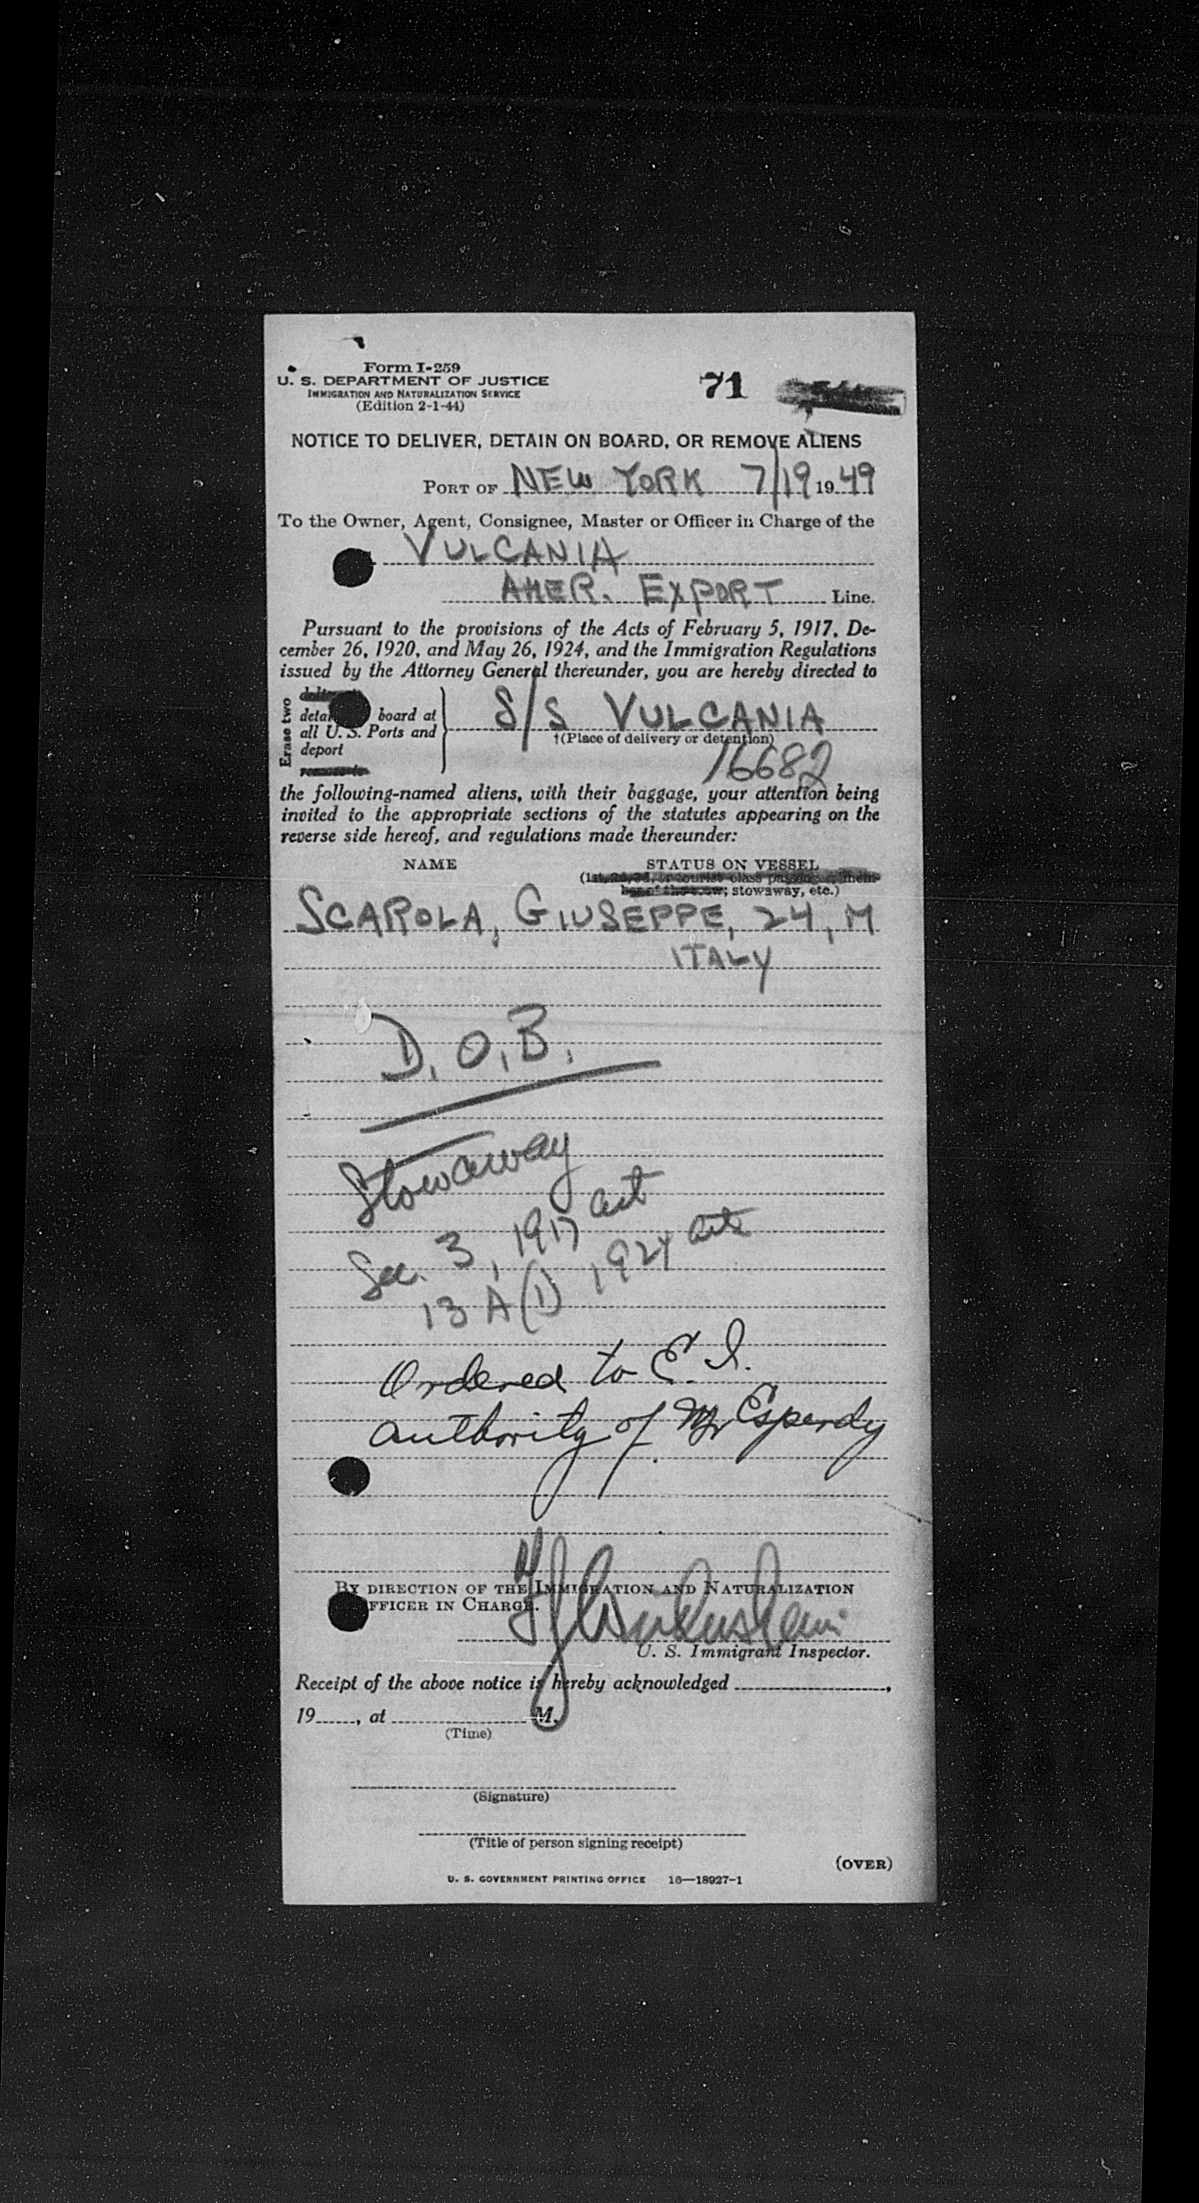 Form I-259
U. S. DEPARTMENT OF JUSTICE
IMMIGRATION AND NATURALIZATION SERVICE
(Edition 2-1-44)
71
NOTICE TO DELIVER, DETAIN ON BOARD, OR REMOVE ALIENS
PORT OF NEW YORK 7/19 1949
To the Owner, Agent, Consignee, Master or Officer in Charge of the
VULCANIA
AMER. EXPORT Line.
Pursuant to the provisions of the Acts of February 5, 1917, De-
cember 26, 1920, and May 26, 1924, and the Immigration Regulations
issued by the Attorney General thereunder, you are hereby directed to
Erase two
board at
all U. S. Ports and
deport
S/S VULCANIA
†(Place of delivery or detention)
16682
the following-named aliens, with their baggage, your attention being
invited to the appropriate sections of the statutes appearing on the
reverse side hereof, and regulations made thereunder:
NAME STATUS ON VESSEL
(1st, 2d, 3d, or tourist class passenger, mem-
ber of the crew; stowaway, etc.)
SCAROLA, GIUSEPPE, 24, M
ITALY
D.O.B.
Stowaway
Sec. 3, 1917 act
13 A (1) 1924 act
Ordered to E. I.
authority of Mr Esperdy
BY DIRECTION OF THE IMMIGRATION AND NATURALIZATION
OFFICER IN CHARGE.
U. S. Immigrant Inspector.
Receipt of the above notice is hereby acknowledged ,
19 , at M.
(Time)
(Signature)
(Title of person signing receipt)
(OVER)
U. S. GOVERNMENT PRINTING OFFICE 16—18927-1